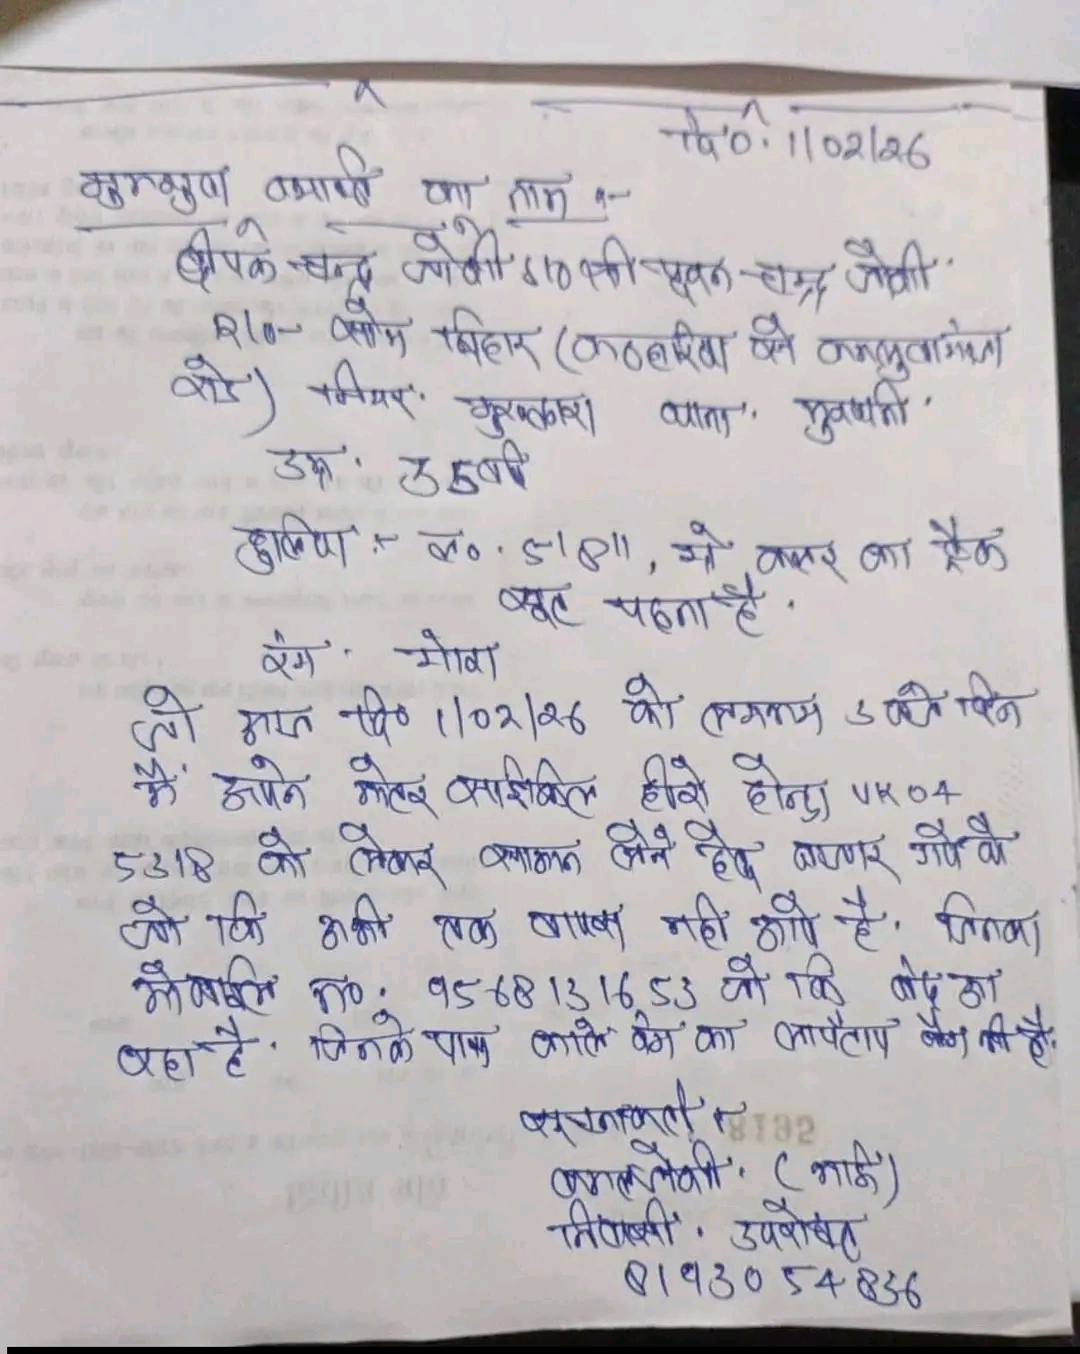 दि० 1/02/26
गुमशुदा व्यक्ति का नाम :-
दीपक चन्द्र जोशी S/0 श्री भुवन चन्द्र जोशी
R/0- विहार (कठघरिया से
रोड) नियर गुरुद्वारा थाना मुखानी
उम्र 35 वर्ष
हुलिया :- ल०. 5'8", ग्रे कलर का ट्रैक
सूट पहना है.
रंग गोरा
जो आज दि० 1/02/26 को लगभग 3 बजे दिन
में अपने मोटर साईकिल हीरो होन्डा UK04
5318 को लेकर सामान लेने हेतु बाजार गये थे
जो कि अभी तक वापस नही आये है. जिनका
मोबाईल न०. 9568131653 जो कि बंद आ
रहा है. जिनके पास काले रंग का लापटाप बैग भी है.
सूचनाकर्ता :-
कमल जोशी. (भाई)
निवासी. उपरोक्त
8193054836
8195